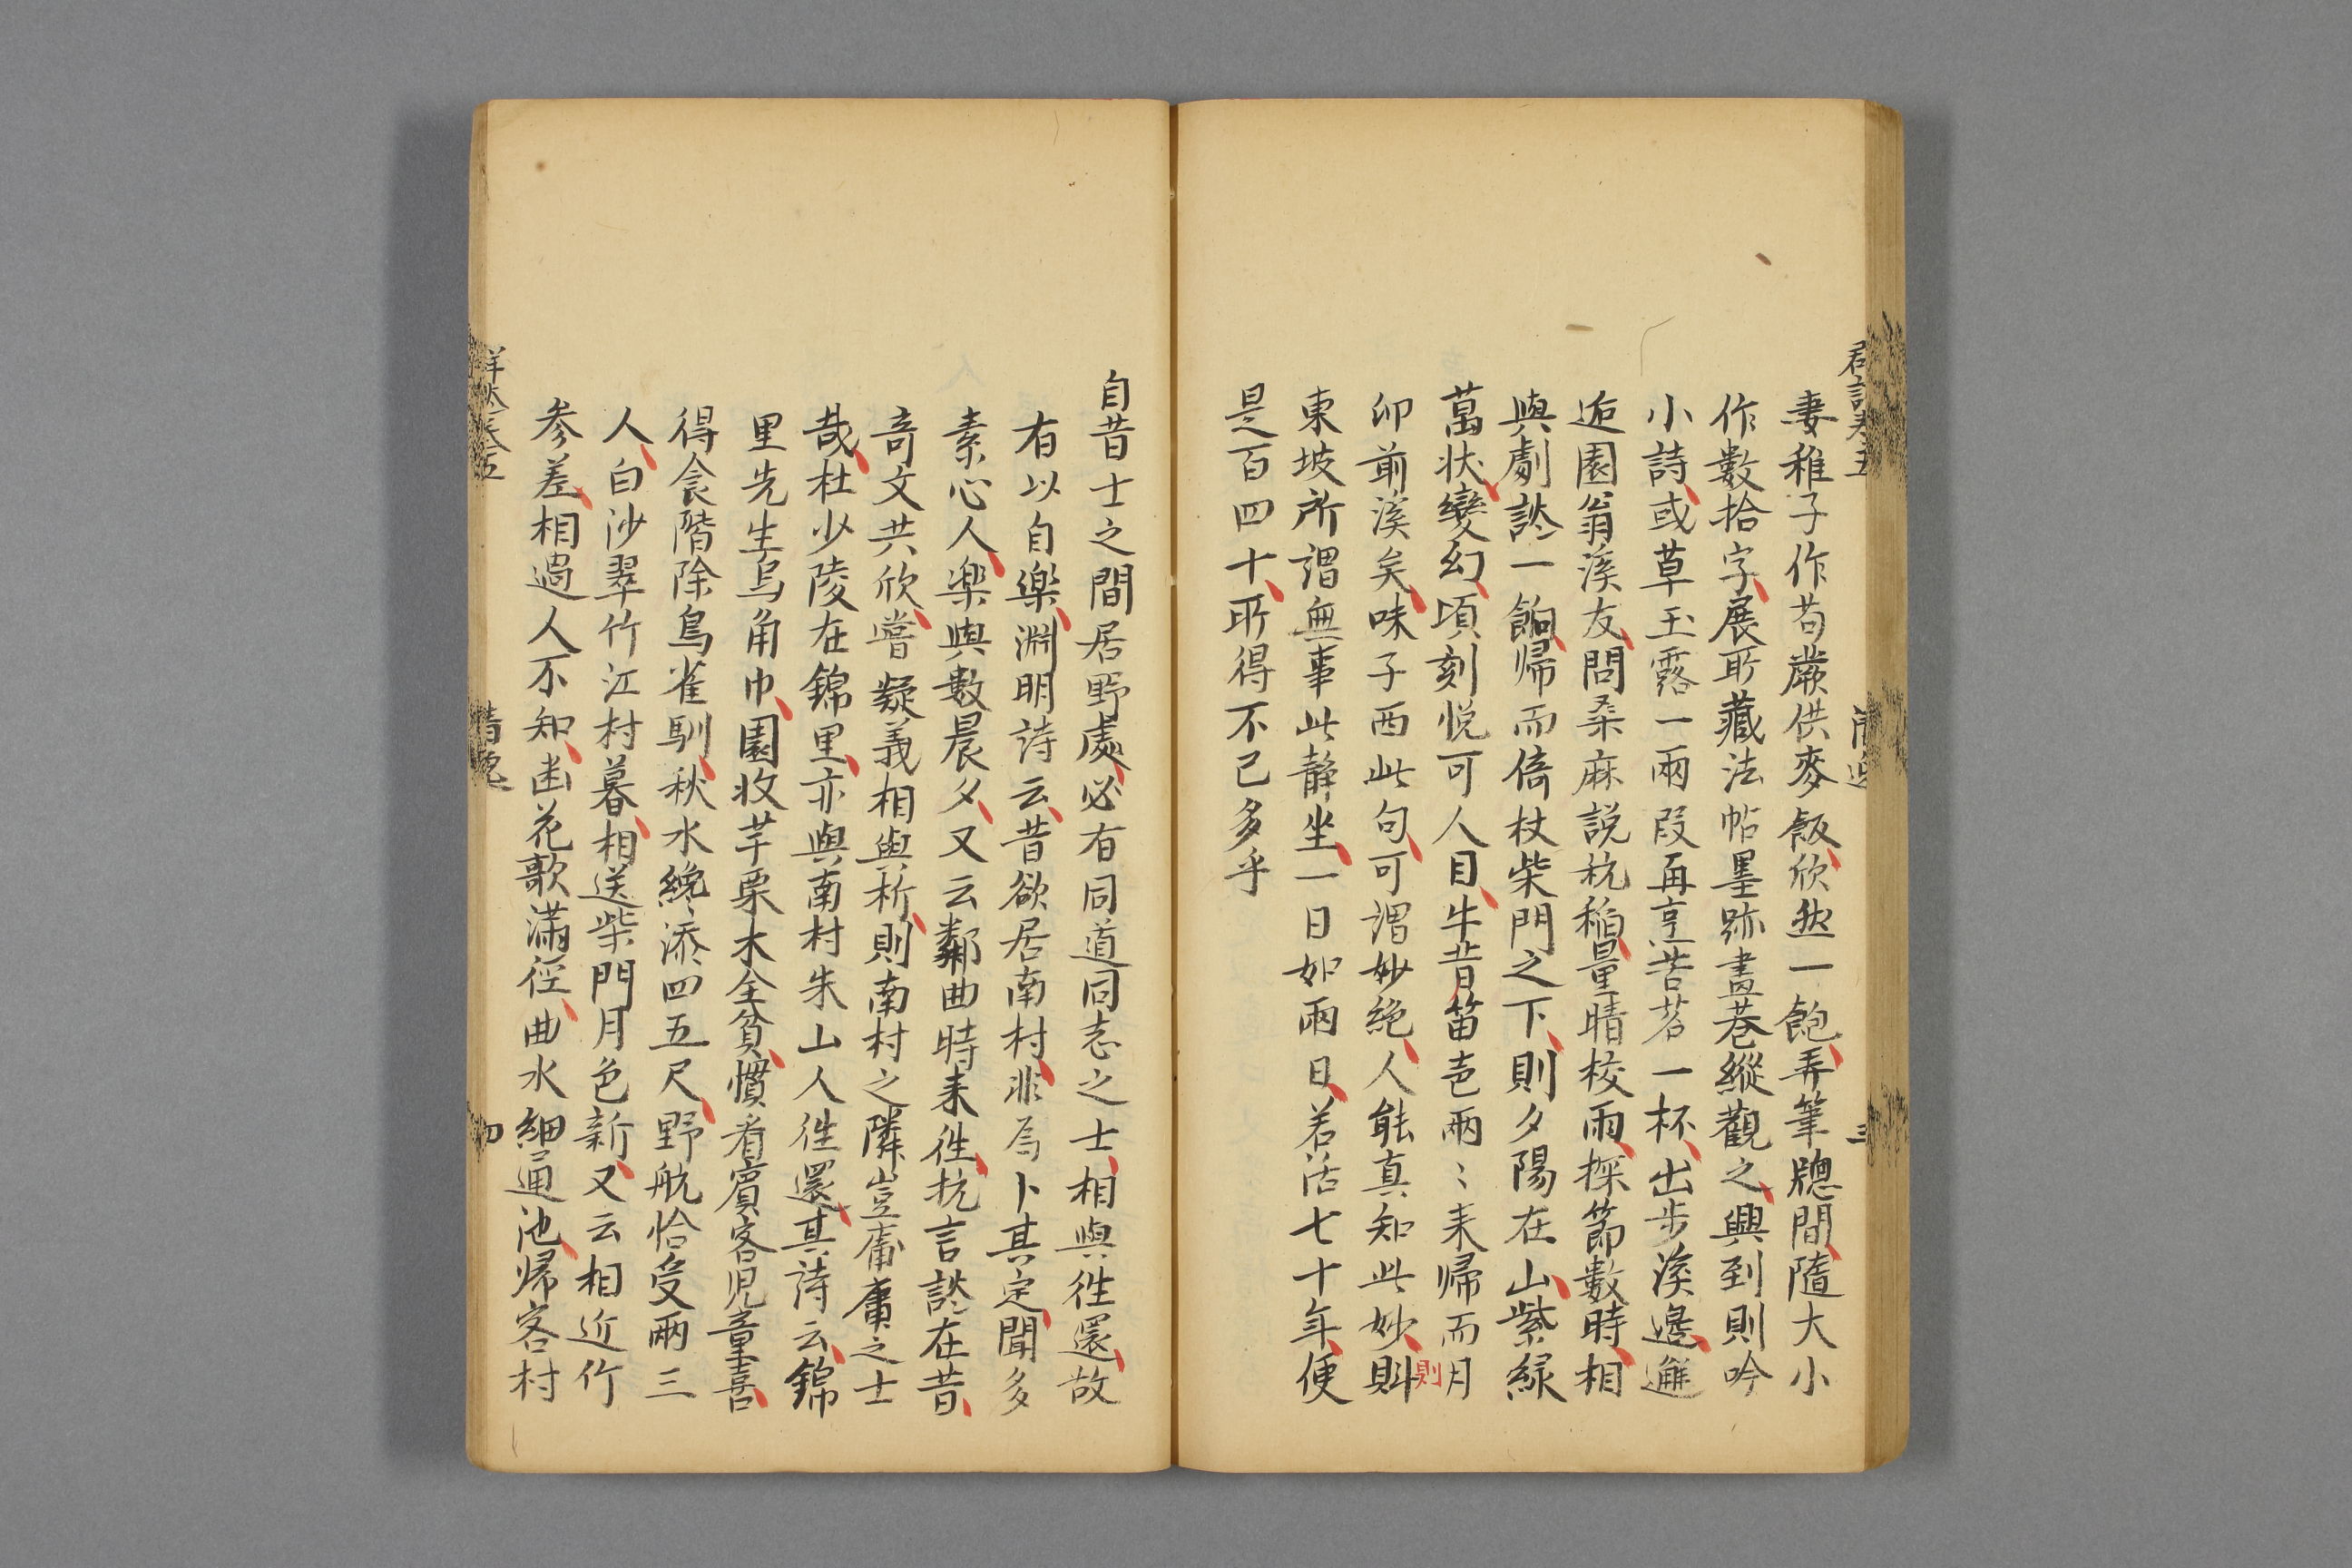 妻稚子作芶蕨供麥飯欣然一飽弄筆牕間隨大小
作數拾字展所藏法帖墨跡畫巻縱觀之興到則吟
小詩或草玉露一兩段再烹苦茗一杯出步溪邊邂
逅園翁溪友問桑麻説秔稻量晴校雨探節數時相
與劇談一餉帰而倚杖柴門之下則夕陽在山紫緑
萬状變幻頃刻悦可人目牛背笛声兩〻来帰而月
印前溪矣味子西此句可謂妙絶人能真知此妙則
則
東坡所謂無事此静坐一日如兩日若活七十年便
是百四十所得不已多乎
三
自昔士之間居野處必有同道同志之士相與徃還故
有以自樂淵明詩云昔欲居南村非為卜其宅聞多
素心人楽與數晨夕又云鄰曲時来徃抗言談在昔
奇文共欣嘗疑義相與析則南村之隣豈庸庸之士
哉杜少陵在錦里亦與南村朱山人徃還其詩云錦
里先生烏角巾園收芋栗木全貧慣看賓客児童喜
得食階除鳥雀馴秋水纔添四五尺野航恰受兩三
人白沙翠竹江村暮相送柴門月色新又云相近竹
参差相過人不知幽花歌滿徑曲水細通池帰客村
四